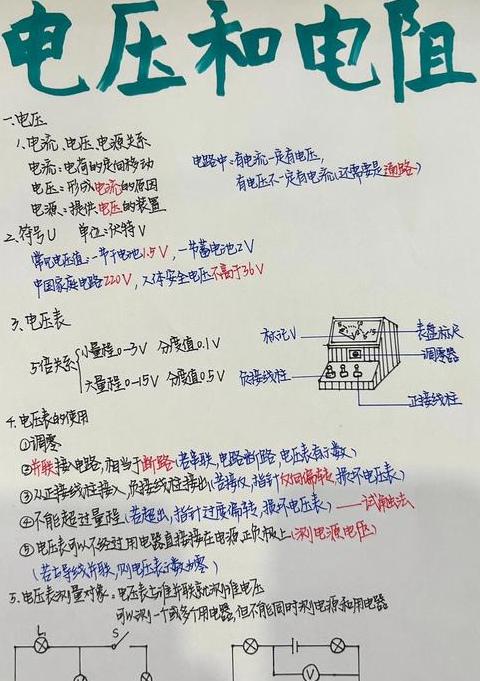 电压和电阻
一.电压
1.电流、电压、电源关系
电流:电荷的定向移动
电压:形成电流的原因
电源:提供电压的装置
电路中:有电流一定有电压,
有电压不一定有电流(还需要是通路)
2.符号U 单位:伏特V
常见电压值:一节干电池1.5V,一节蓄电池2V
中国家庭电路220V,人体安全电压不高于36V
3.电压表
5倍关系
小量程0-3V 分度值0.1V
大量程0-15V 分度值0.5V
标记V
负接线柱
表盘标尺
调零器
正接线柱
4.电压表的使用
①调零
②并联接入电路,相当于断路(若串联,电路断路,电压表有示数)
③从正接线柱接入,负接线柱接出(若接反,指针反向偏转,损坏电压表)
④不能超过量程(若超出,指针过度偏转,损坏电压表)——试触法
⑤电压表可以不经过用电器直接接在电源正负极上(测电源电压)
(若与导线并联,则电压表示数为零)
5.电压表测量对象:电压表与谁并联就测谁电压
可以测一个或多个用电器,但不能同时测电源和用电器
L
S
V